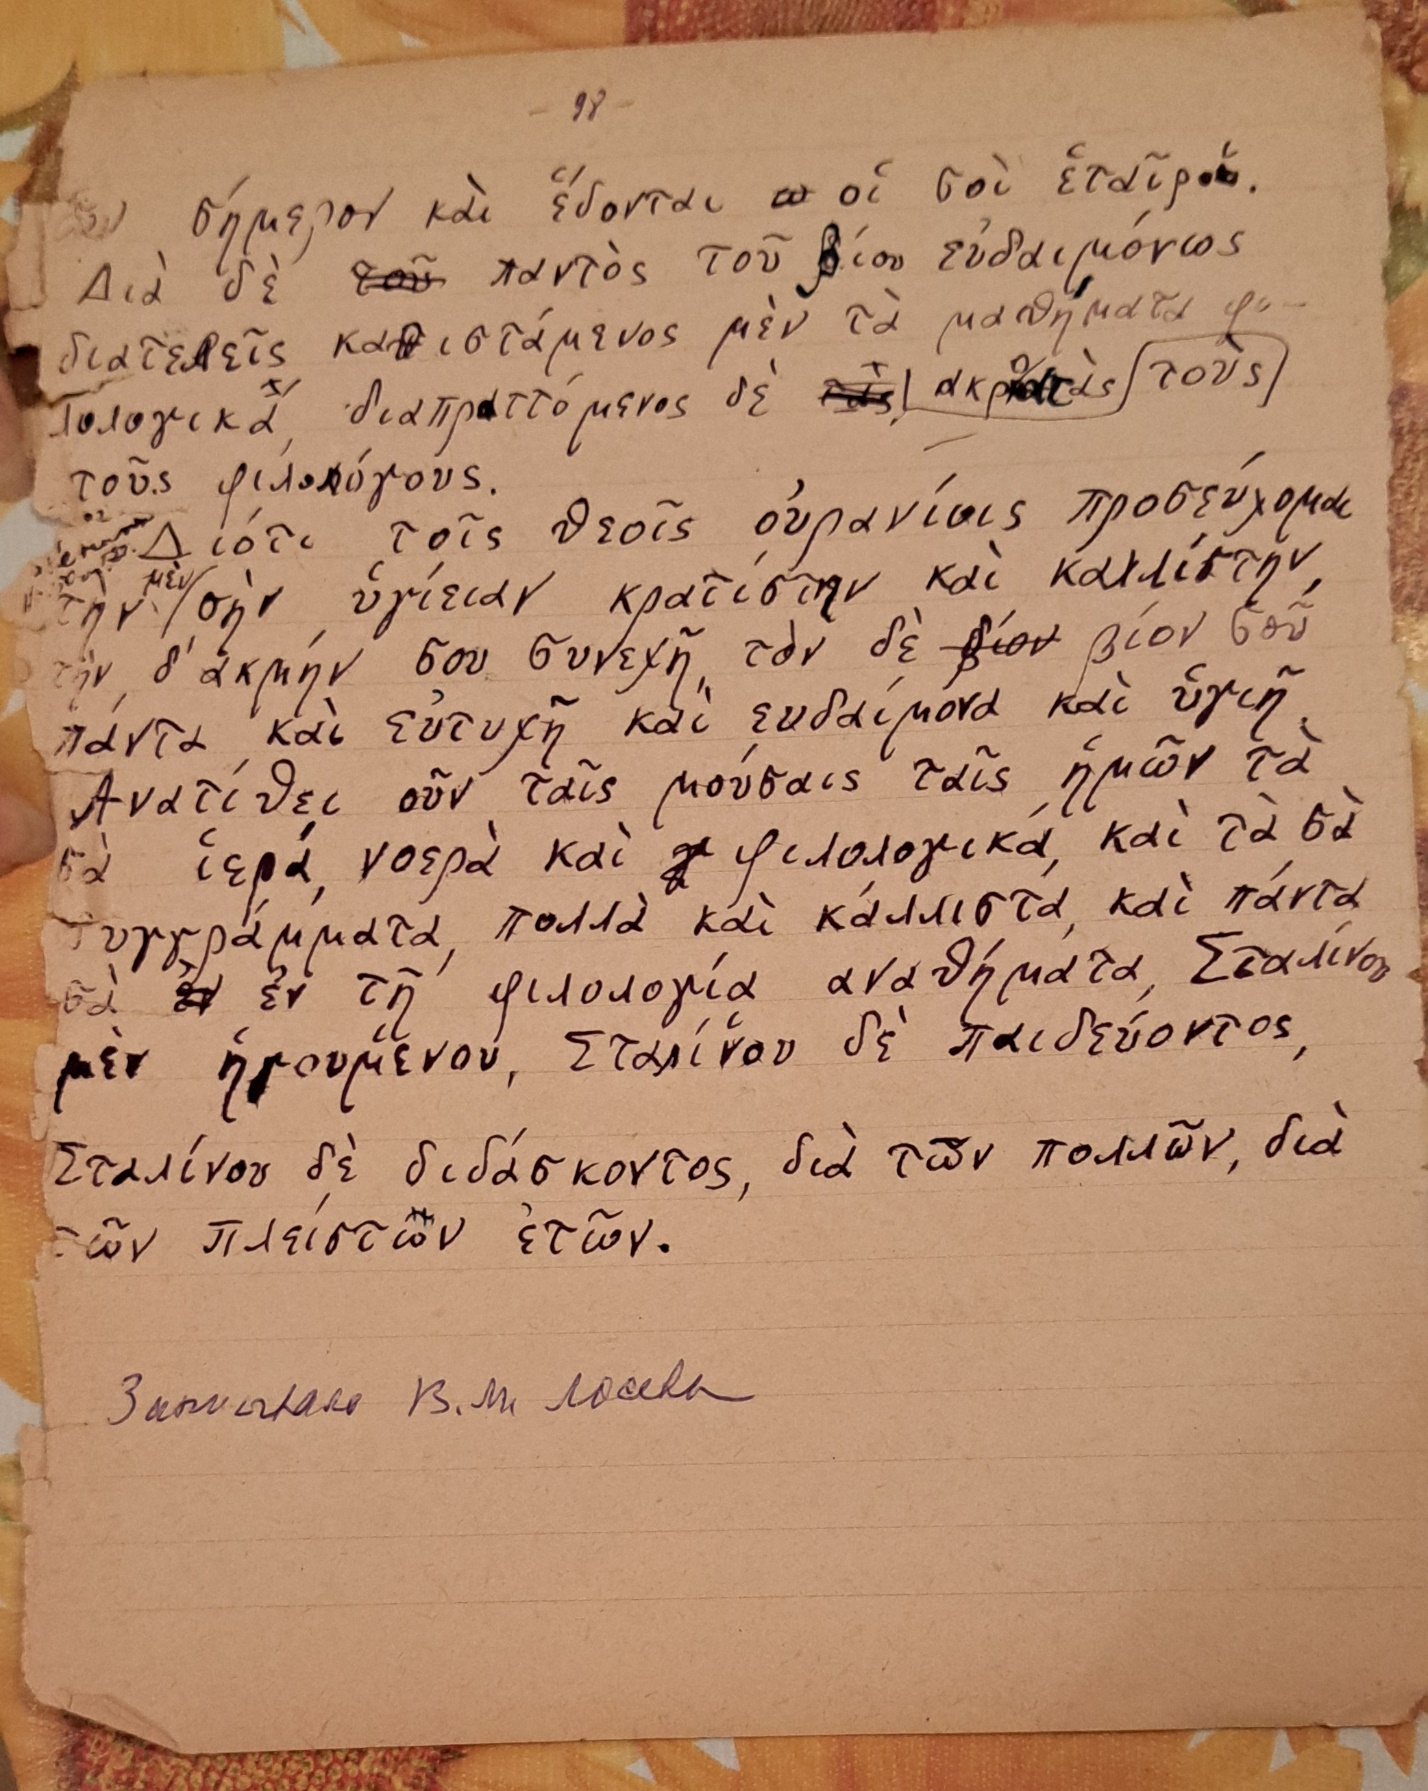 - 98 -
σήμερον καὶ ἕδονται οἱ σοὶ ἑταῖροι.
Διὰ δὲ παντὸς τοῦ βίου εὐδαιμόνως
διατελεῖς καθιστάμενος μὲν τὰ μαθήματα φι-
λολογικὰ, διαπραττόμενος δὲ ἀκροατὰς τοὺς
τοῦς φιλολόγους.
Διότι τοῖς θεοῖς οὐρανίοις προσεύχομαι
τὴν μὲν σὴν ὑγίειαν κρατίστην καὶ καλλίστην,
τὴν δ' ἀκμήν σου συνεχῆ, τὸν δὲ βίον σοῦ
πάντα καὶ εὐτυχῆ καὶ ευδαίμονα καὶ ὑγιῆ.
Ανατίθει οῦν ταῖς μούσαις ταῖς ἡμῶν τὰ
σὰ ἱερά, νοερὰ καὶ φιλολογικά, καὶ τὰ σὰ
συγγράμματα, πολλὰ καὶ κάλλιστα, καὶ πάντα
σὰ ἐν τῇ φιλολογία αναθήματα, Σταλίνου
μὲν ἡγουμένου, Σταλίνου δὲ παιδεύοντος,
Σταλίνου δὲ διδάσκοντος, διὰ τῶν πολλῶν, διὰ
τῶν πλείστων ἐτῶν.
В. М. Лосева